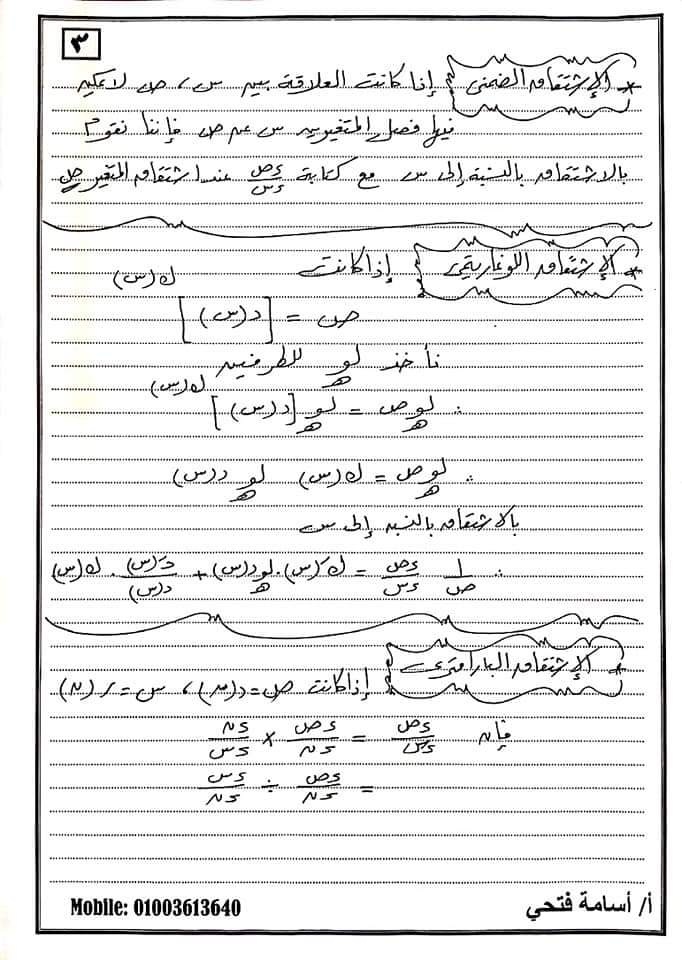 ٣
* الإشتقاق الضمنى } إذا كانت العلاقة بين س ، ص لا يمكن
فيها فصل المتغيرين س عن ص فإننا نقوم
بالاشتقاق بالنسبة إلى س مع كتابة ءص/ءس عند اشتقاق المتغير ص
* الإشتقاق اللوغاريتمى } إذا كانت
ص = [د(س)]^ك(س)
نأخذ لو_ه للطرفين
∴ لو_ه ص = لو_ه [د(س)]^ك(س)
∴ لو_ه ص = ك(س) لو_ه د(س)
بالاشتقاق بالنسبه إلى س
∴ ١/ص ءص/ءس = ك َ(س) . لو_ه د(س) + د َ(س)/د(س) . ك(س)
* الإشتقاق البارامترى } إذا كانت ص = د(ن) ، س = ر(ن)
فإن ءص/ءس = ءص/ءن × ءن/ءس
= ءص/ءن ÷ ءس/ءن
Mobile: 01003613640
أ/ أسامة فتحي